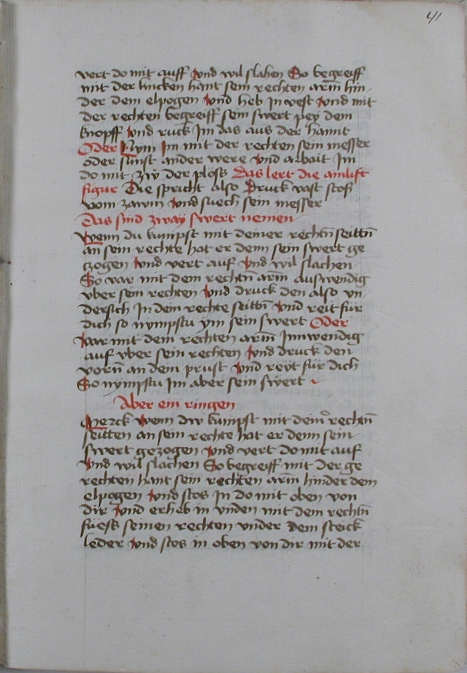 41
vert do mit auff Vnd wil slahen So begreiff
mit der lincken hant sein rechten arm̄ hin
der dem elpogen Vnd heb In vest Vnd mit
der rechten begreiff sein swert pey dem
knopff Vnd ruck Im das aus der hannt
Oder Nym im mit der rechten sein messer
oder sunst ander were Vnd arbait Im
do mit Zw̄ der plosß Das lert die ainlift
figur Die spricht also Druck vast stos
vom zawm Vnd suech sein messer
Das sind zway swert nemen
Wenn du kumpst mit deiner rechtn̄ seittn̄
an sein rechte hat er denn sein swert ge
zogen Vnd vert auf Vnd wil slachen
So var mit dem rechtn̄ arm auswendig
vber sein rechten Vnd druck den also vn
dersich In dem rechte seittn̄ Vnd reit für
dich so nympstu ym sein swert Oder
Var mit dem rechten arm̄ Innwendig
auf vber sein rechten Vnd druck den
vorn̄ an dem prust Vnd reyt für dich
So nympstu Im aber sein swert
Aber ein ringen
Merck Wenn dw kumpst mit dem̄ rechtn̄
seitten an sein rechte hat er denn sein
swert gezogen Vnd vert do mit auf
Vnd wil slachen So begreiff mit der ge
rechten hant sein rechten arm hinder dem
elpogen Vnd stos In do mit oben von
dir Vnd erheb in vnden mit dem rechtn̄
fuesß seinen rechten vnder dem steick
leder Vnd stos in oben von dir mit der